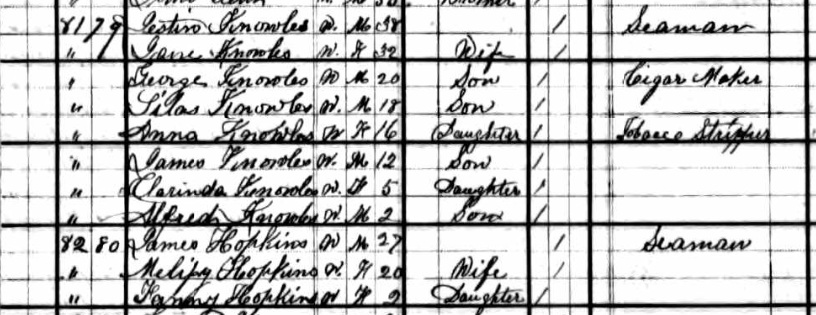 81 79 Justin Knowles W. M 38 1 Seaman
" Jane Knowles W. F 32 Wife 1
" George Knowles W M 20 Son 1 Cigar Maker
" Silas Knowles W. M 18 Son 1
" Anna Knowles W F 16 Daughter 1 Tobacco Stripper
" James Knowles W. M 12 Son 1
" Clarinda Knowles W. F 5 Daughter 1
" Alfred Knowles W. M 2 Son 1
82 80 James Hopkins W M 27 1 Seaman
" Hopkins W. F 20 Wife 1
" Fanny Hopkins W F 2 Daughter 1